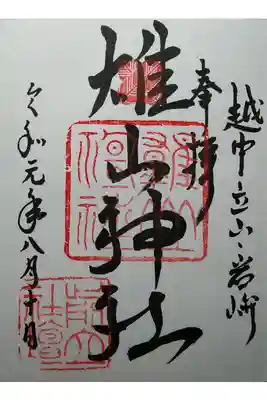 越中立山岩峅
奉拝
雄山神社
令和元年八月十日